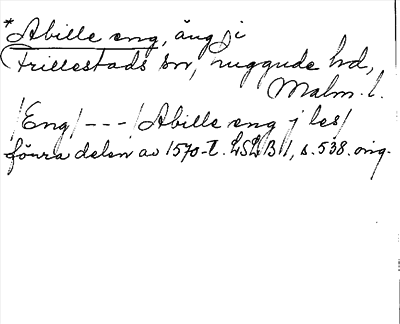 *Abille eng, äng, i
Frillestads sn, Luggude hd,
Malm. l.
/Eng/ --- /Abille eng j les/
förra delen av 1570-t. LSLB 1, s. 538. orig.